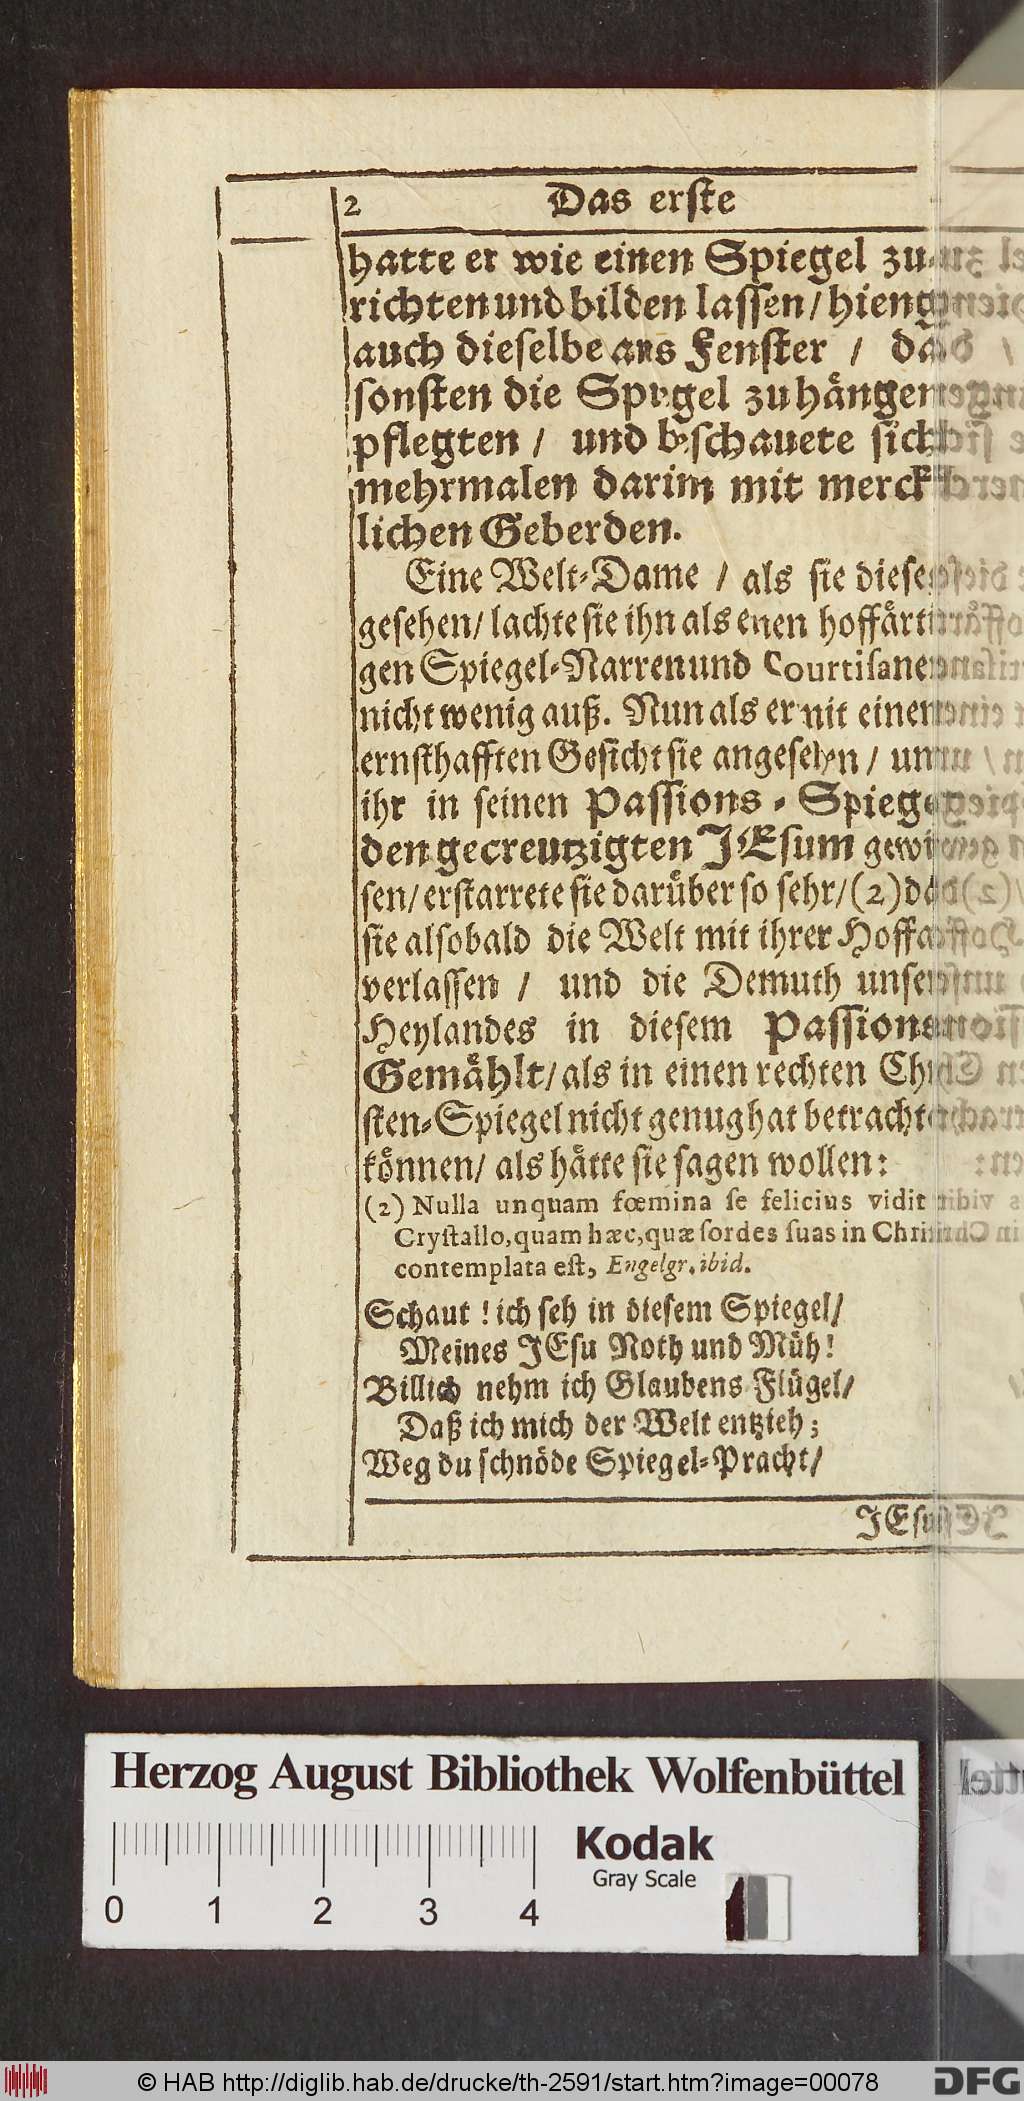 2 Das erste
hatte er wie einen Spiegel zu-
richten und bilden lassen/ hieng
auch dieselbe ans Fenster / da
sonsten die Spigel zu hängen
pflegten / und beschauete sich
mehrmalen darinn mit merck-
lichen Geberden.
Eine Welt-Dame / als sie diese
gesehen/ lachte sie ihn als einen hoffärti-
gen Spiegel-Narren und Courtisanen
nicht wenig auß. Nun als er mit einem
ernsthafften Gesicht sie angesehen / und
ihr in seinen Passions-Spiegel
den gecreutzigten JEsum gewie-
sen/ erstarrete sie darüber so sehr/ (2) daß
sie alsobald die Welt mit ihrer Hoffart
verlassen / und die Demuth unsers
Heylandes in diesem Passions-
Gemählt/ als in einen rechten Chri-
sten-Spiegel nicht genug hat betrachten
können/ als hätte sie sagen wollen:
(2) Nulla unquam fœmina se felicius vidit
Crystallo, quam hæc, quæ sordes suas in Christo
contemplata est, Engelgr. ibid.
Schaut ! ich seh in diesem Spiegel/
Meines JEsu Noth und Müh!
Billich nehm ich Glaubens-Flügel/
Daß ich mich der Welt entzieh;
Weg du schnöde Spiegel-Pracht/
JEsus
Herzog August Bibliothek Wolfenbüttel
Kodak
Gray Scale
0 1 2 3 4
© HAB http://diglib.hab.de/drucke/th-2591/start.htm?image=00078
DFG